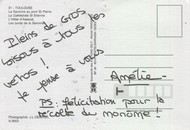 31 - TOULOUSE
La Garonne au pont St Pierre
La Cathédrale St Etienne
L'Hôtel d'Assézat
Les bords de la Garonne
Pleins de GROS
bisous à tous les
vetos !
Je pense à vous
Amélie
PS: félicitation pour la
récolte du monôme !